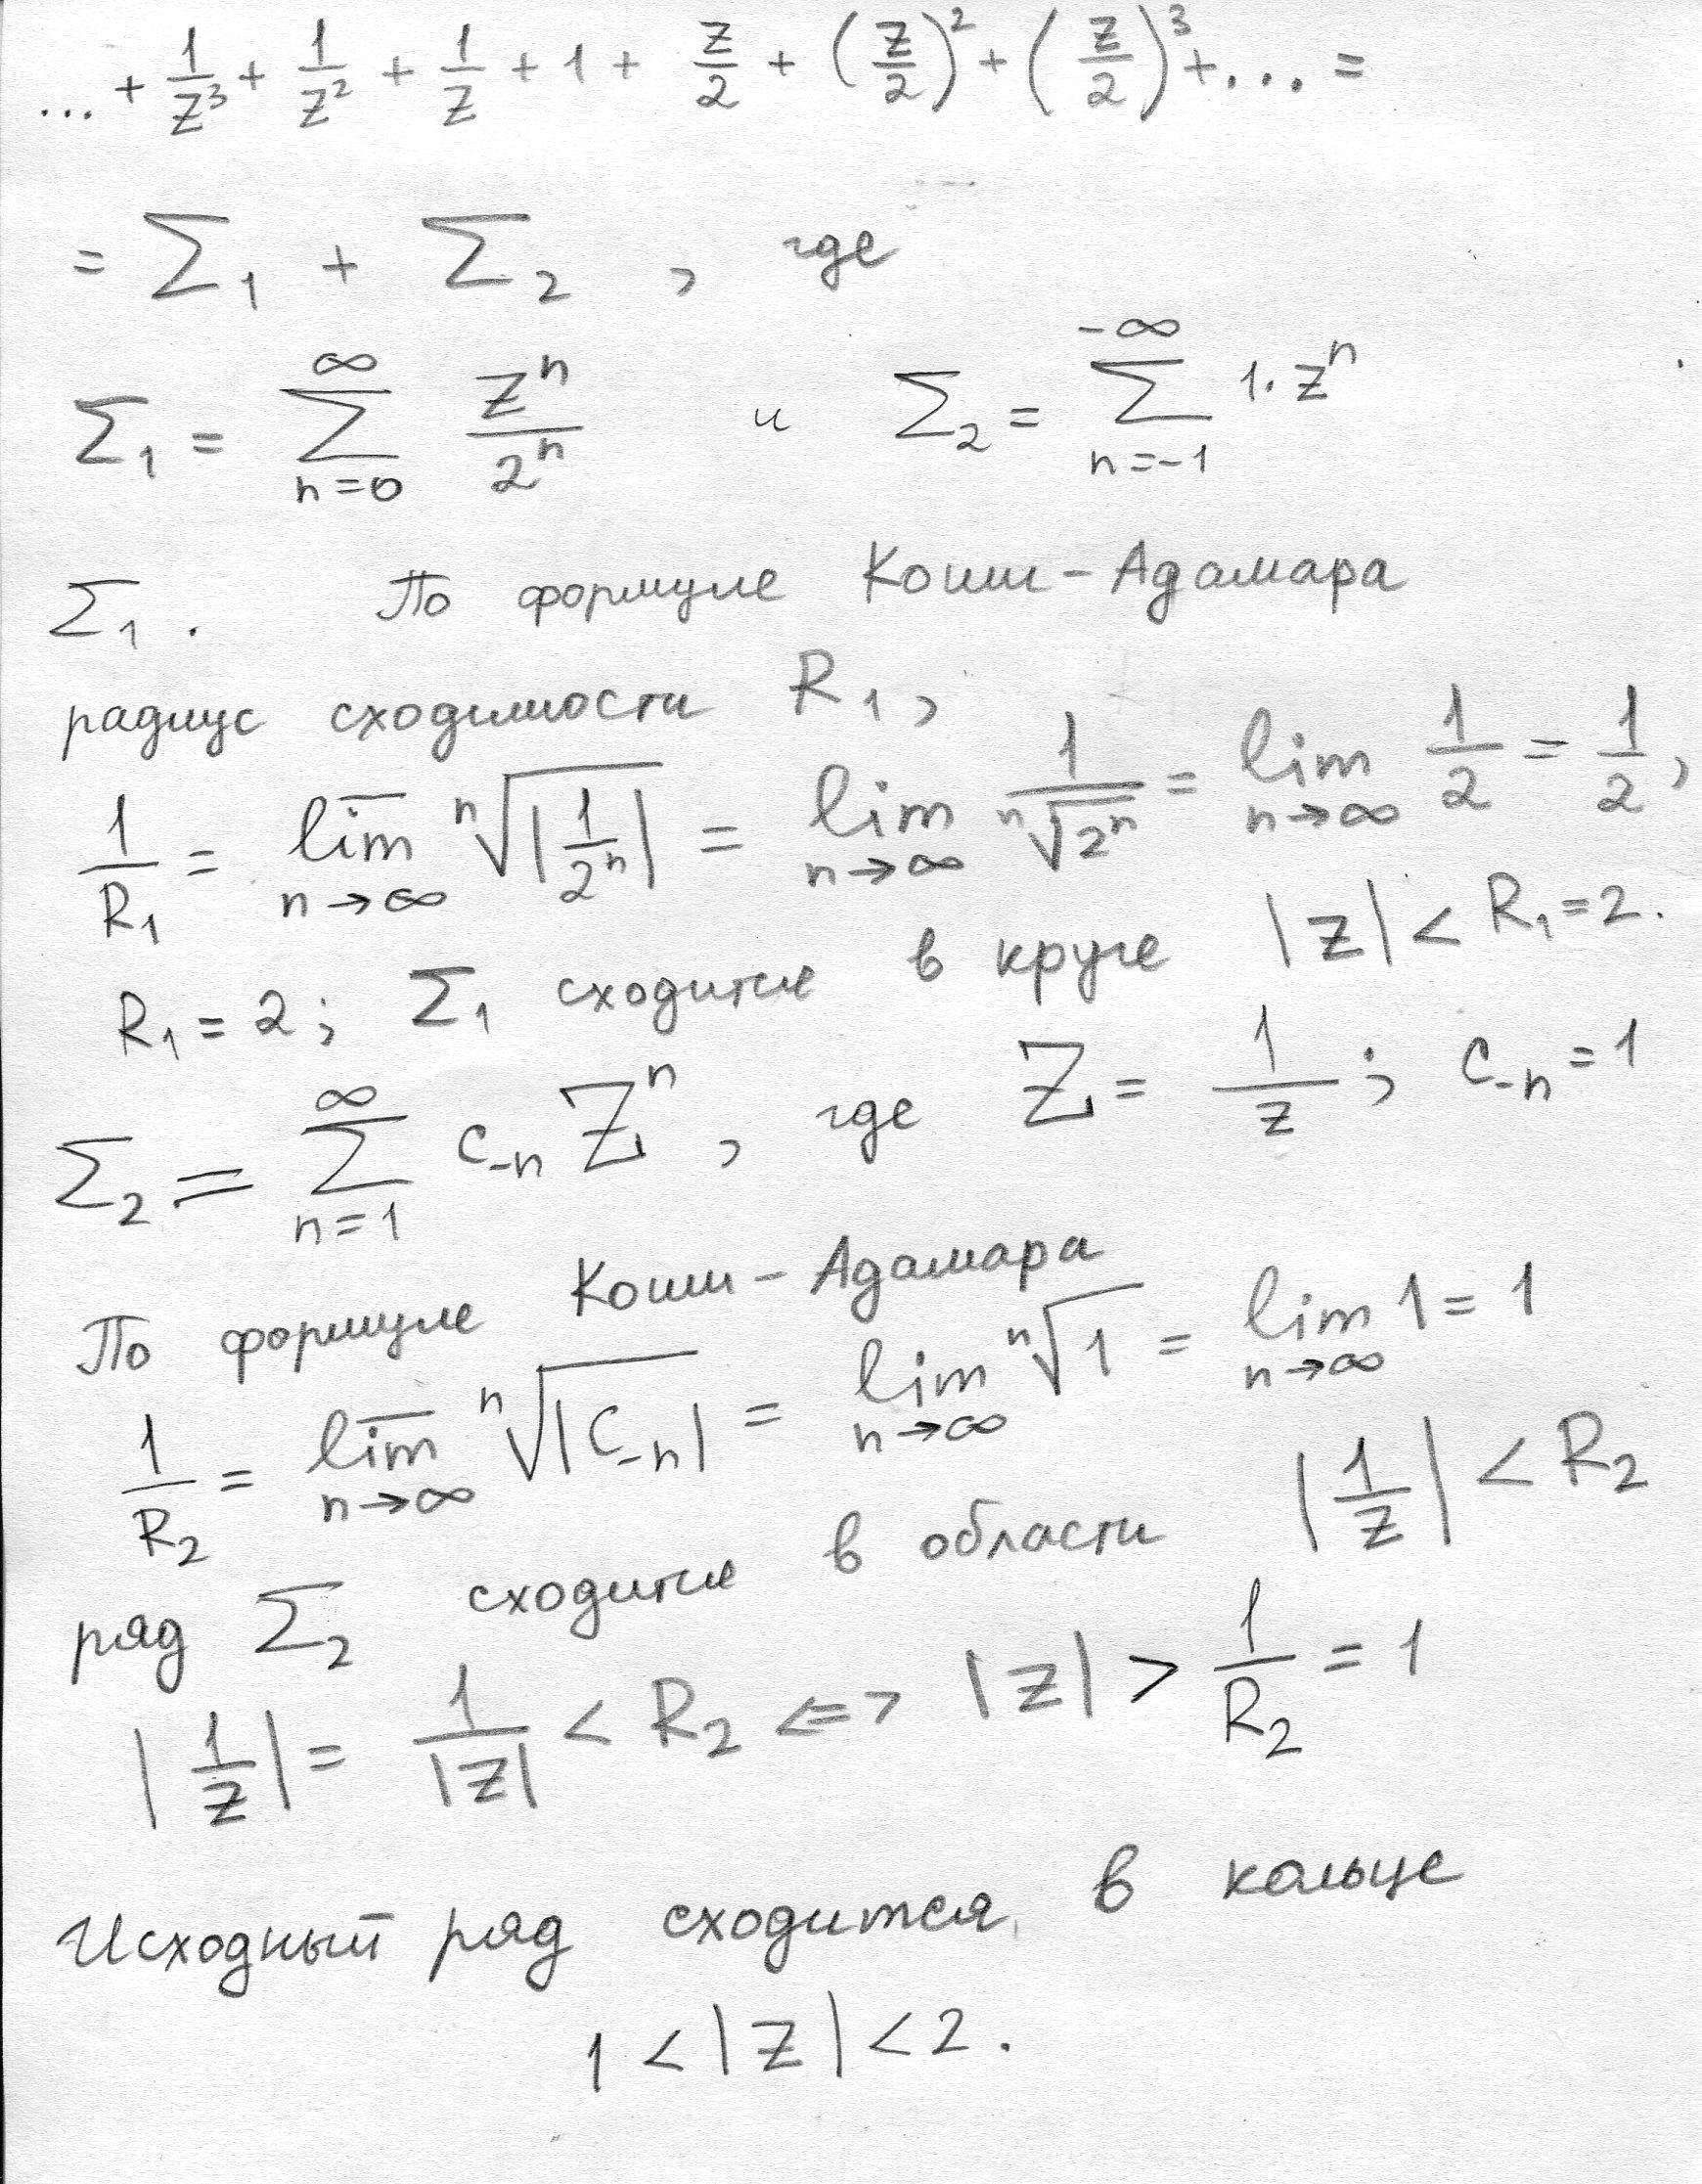 ... + 1/z³ + 1/z² + 1/z + 1 + z/2 + (z/2)² + (z/2)³ + ... =
= Σ₁ + Σ₂ , где
Σ₁ = ∑_{n=0}^{∞} zⁿ/2ⁿ и Σ₂ = ∑_{n=-1}^{-∞} 1·zⁿ
Σ₁. По формуле Коши-Адамара
радиус сходимости R₁,
1/R₁ = \overline{lim}_{n→∞} ⁿ√|1/2ⁿ| = lim_{n→∞} 1/ⁿ√2ⁿ = lim_{n→∞} 1/2 = 1/2,
R₁ = 2; Σ₁ сходится в круге |z| < R₁ = 2.
Σ₂ = ∑_{n=1}^{∞} c₋ₙ Zⁿ, где Z = 1/z; c₋ₙ = 1
По формуле Коши-Адамара
1/R₂ = \overline{lim}_{n→∞} ⁿ√|c₋ₙ| = lim_{n→∞} ⁿ√1 = lim_{n→∞} 1 = 1
ряд Σ₂ сходится в области |1/z| < R₂
|1/z| = 1/|z| < R₂ <=> |z| > 1/R₂ = 1
Исходный ряд сходится в кольце
1 < |z| < 2.